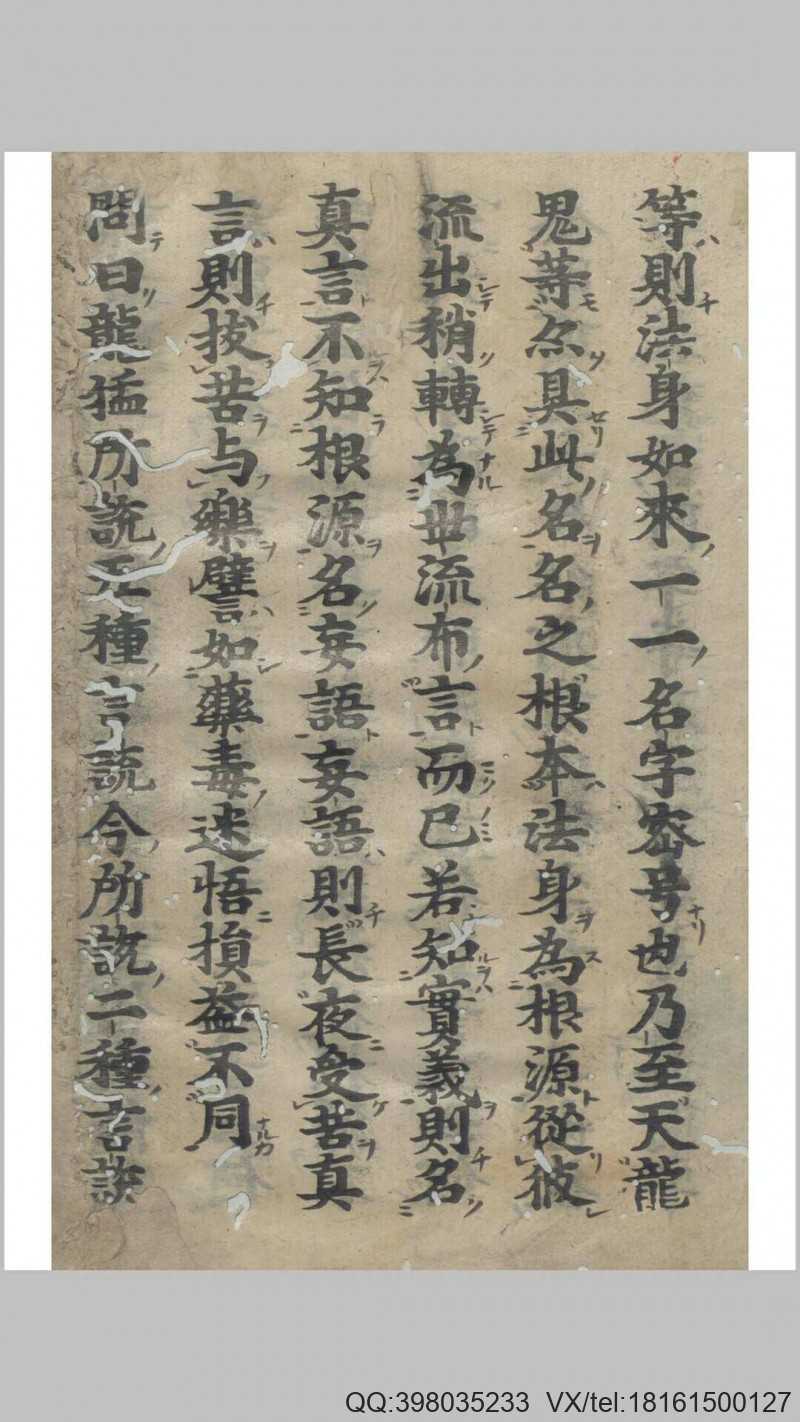 等則法身如來一一名字密号也乃至天龍
鬼等尒具此名名之根本法身為根源從彼
流出稍轉為世流布言而已若知實義則名
真言不知根源名妄語妄語則長夜受苦真
言則拔苦与樂譬如藥毒迷悟損益不同
問曰龍猛所說五種言說今所說二種言說
QQ:398035233 VX/tel:18161500127